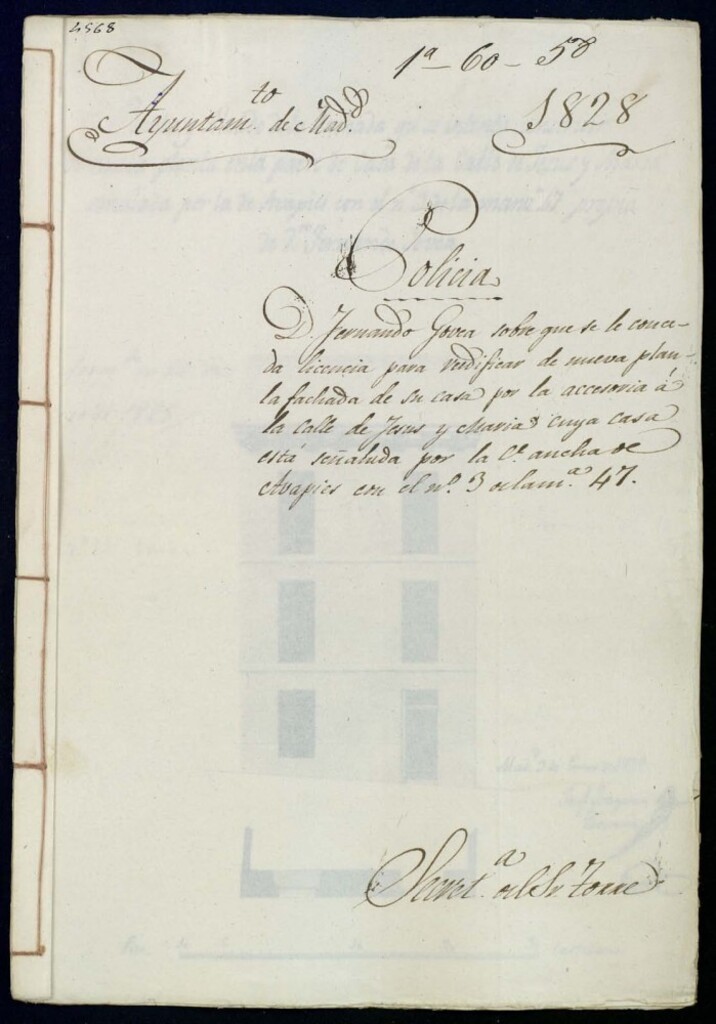 4568
1ª - 60 - 58
Ayuntam.to de Mad.d 1828
Policia
D. Fernando Govea sobre que se le conce-
da licencia para redificar de nueva plan-
la fachada de su casa por la accesoria á
la calle de Jesus y Maria cuya casa
está señalada por la C.e ancha de
Avapies con el n.o 3 de la m.a 47.
Secret.a del Sr. Torre